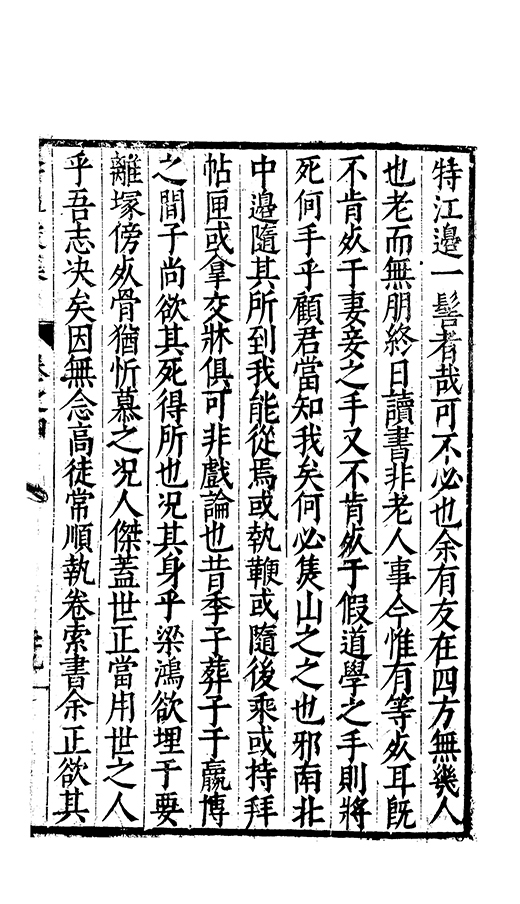 特江邉一髻者哉可不必也余有友在四方無幾人
也老而無朋終日讀書非老人事今惟有等死耳既
不肯死于妻妾之手又不肯死于假道學之手則將
死何手乎顧君當知我矣何必焦山之之也邪南北
中邉隨其所到我能從焉或執鞭或隨後乘或持拜
帖匣或拿交牀俱可非戲論也昔季子葬子于嬴博
之間子尚欲其死得所也况其身乎梁鴻欲埋于要
離塚傍死骨猶忻慕之况人傑蓋世正當用世之人
乎吾志决矣因無念高徒常順執卷索書余正欲其
卷之四